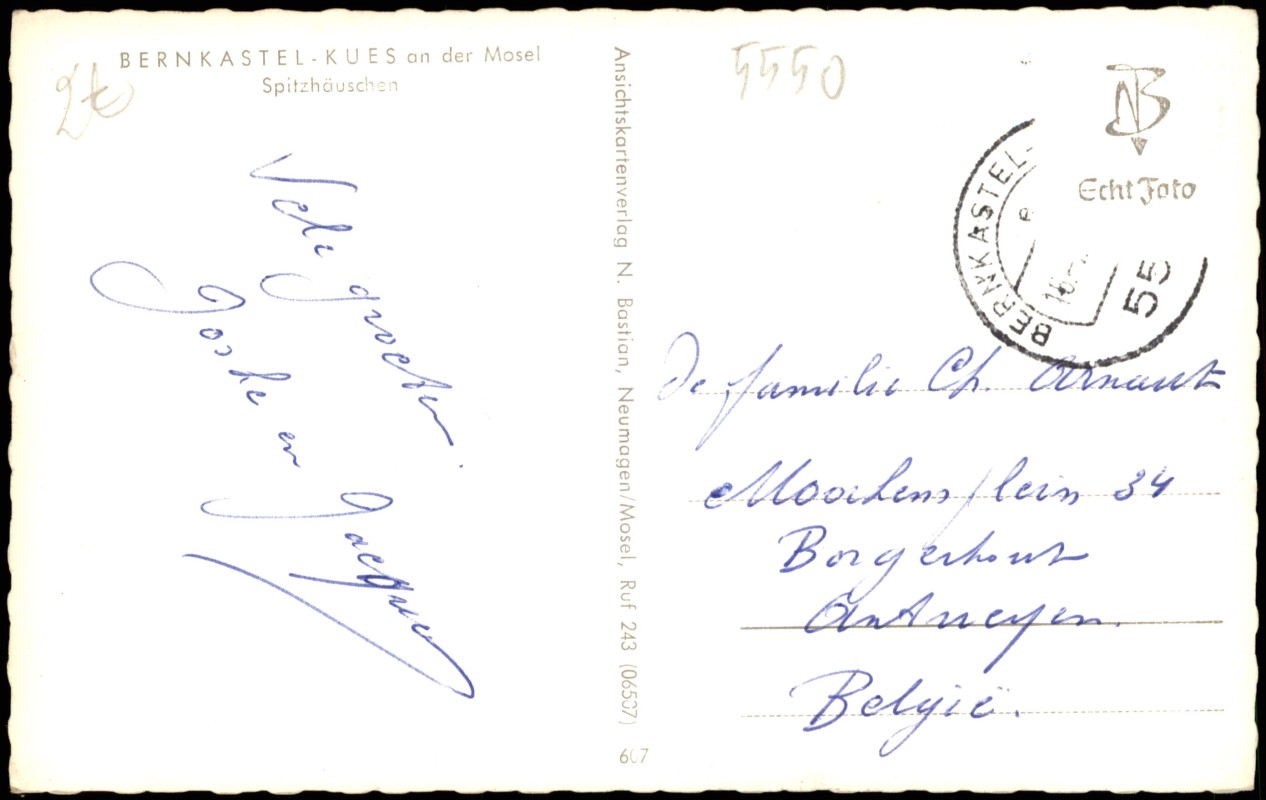 BERNKASTEL-KUES an der Mosel
Spitzhäuschen
2€
Vele groeten
Joske en Jacques
Ansichtskartenverlag N. Bastian, Neumagen/Mosel, Ruf 243 (06507)
607
5550
NB
Echt Foto
BERNKASTEL-
55
De familie Ch. Arnaut
34
Borgerhout
Antwerpen.
België.